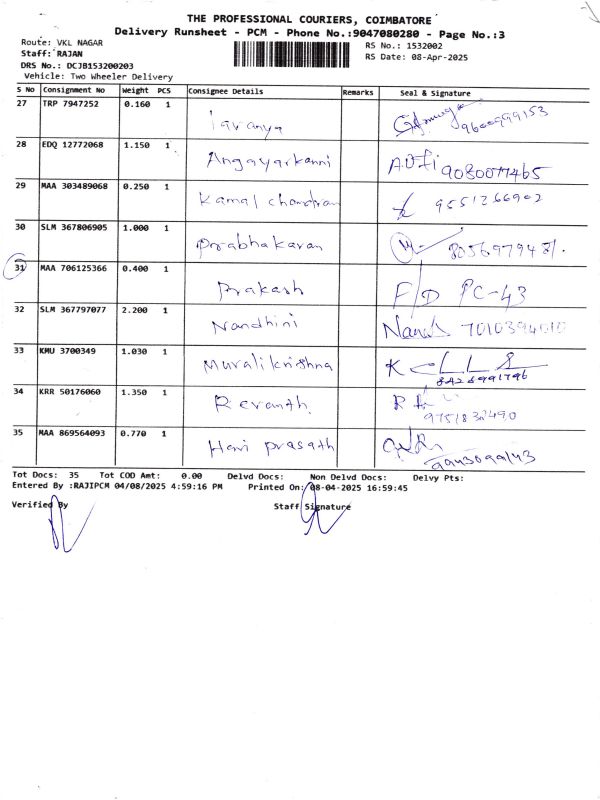 THE PROFESSIONAL COURIERS, COIMBATORE
Delivery Runsheet - PCM - Phone No.:9047080280 - Page No.:3
Route: VKL NAGAR
RS No.: 1532002
Staff: RAJAN
RS Date: 08-Apr-2025
DRS No.: DCJB153200203
Vehicle: Two Wheeler Delivery
S No Consignment No Weight PCS Consignee Details Remarks Seal & Signature
27 TRP 7947252 0.160 1 Lavanya 9600999153
28 EDQ 12772068 1.150 1 Angayarkanni 9080077465
29 MAA 303489068 0.250 1 Kamal chandran 9551266902
30 SLM 367806905 1.000 1 Prabhakaran
31 MAA 706125366 0.400 1 Prakash F/D PC-43
32 SLM 367797077 2.200 1 Nandhini
33 KMU 3700349 1.030 1 Muralikrishna 8428991796
34 KRR 50176060 1.350 1 Revanth 9751832490
35 MAA 869564093 0.770 1 Hari prasath 9943099143
Tot Docs: 35 Tot COD Amt: 0.00 Delvd Docs: Non Delvd Docs: Delvy Pts:
Entered By :RAJIPCM 04/08/2025 4:59:16 PM Printed On: 08-04-2025 16:59:45
Verified By Staff Signature